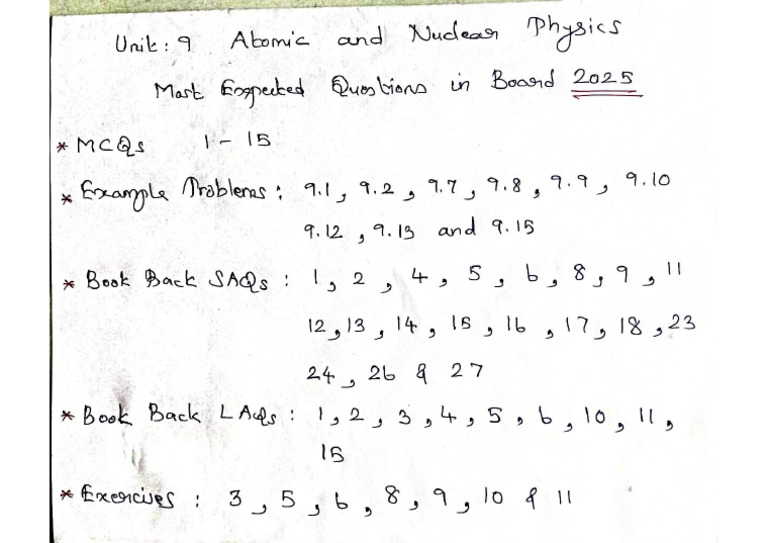 Unit : 9 Atomic and Nuclear Physics
Most Expected Questions in Board 2025
* MCQs 1 - 15
* Example Problems : 9.1, 9.2, 9.7, 9.8, 9.9, 9.10
9.12, 9.13 and 9.15
* Book Back SAQs : 1, 2, 4, 5, 6, 8, 9, 11
12, 13, 14, 15, 16, 17, 18, 23
24, 26 & 27
* Book Back LAQs : 1, 2, 3, 4, 5, 6, 10, 11,
15
* Exercives : 3, 5, 6, 8, 9, 10 & 11